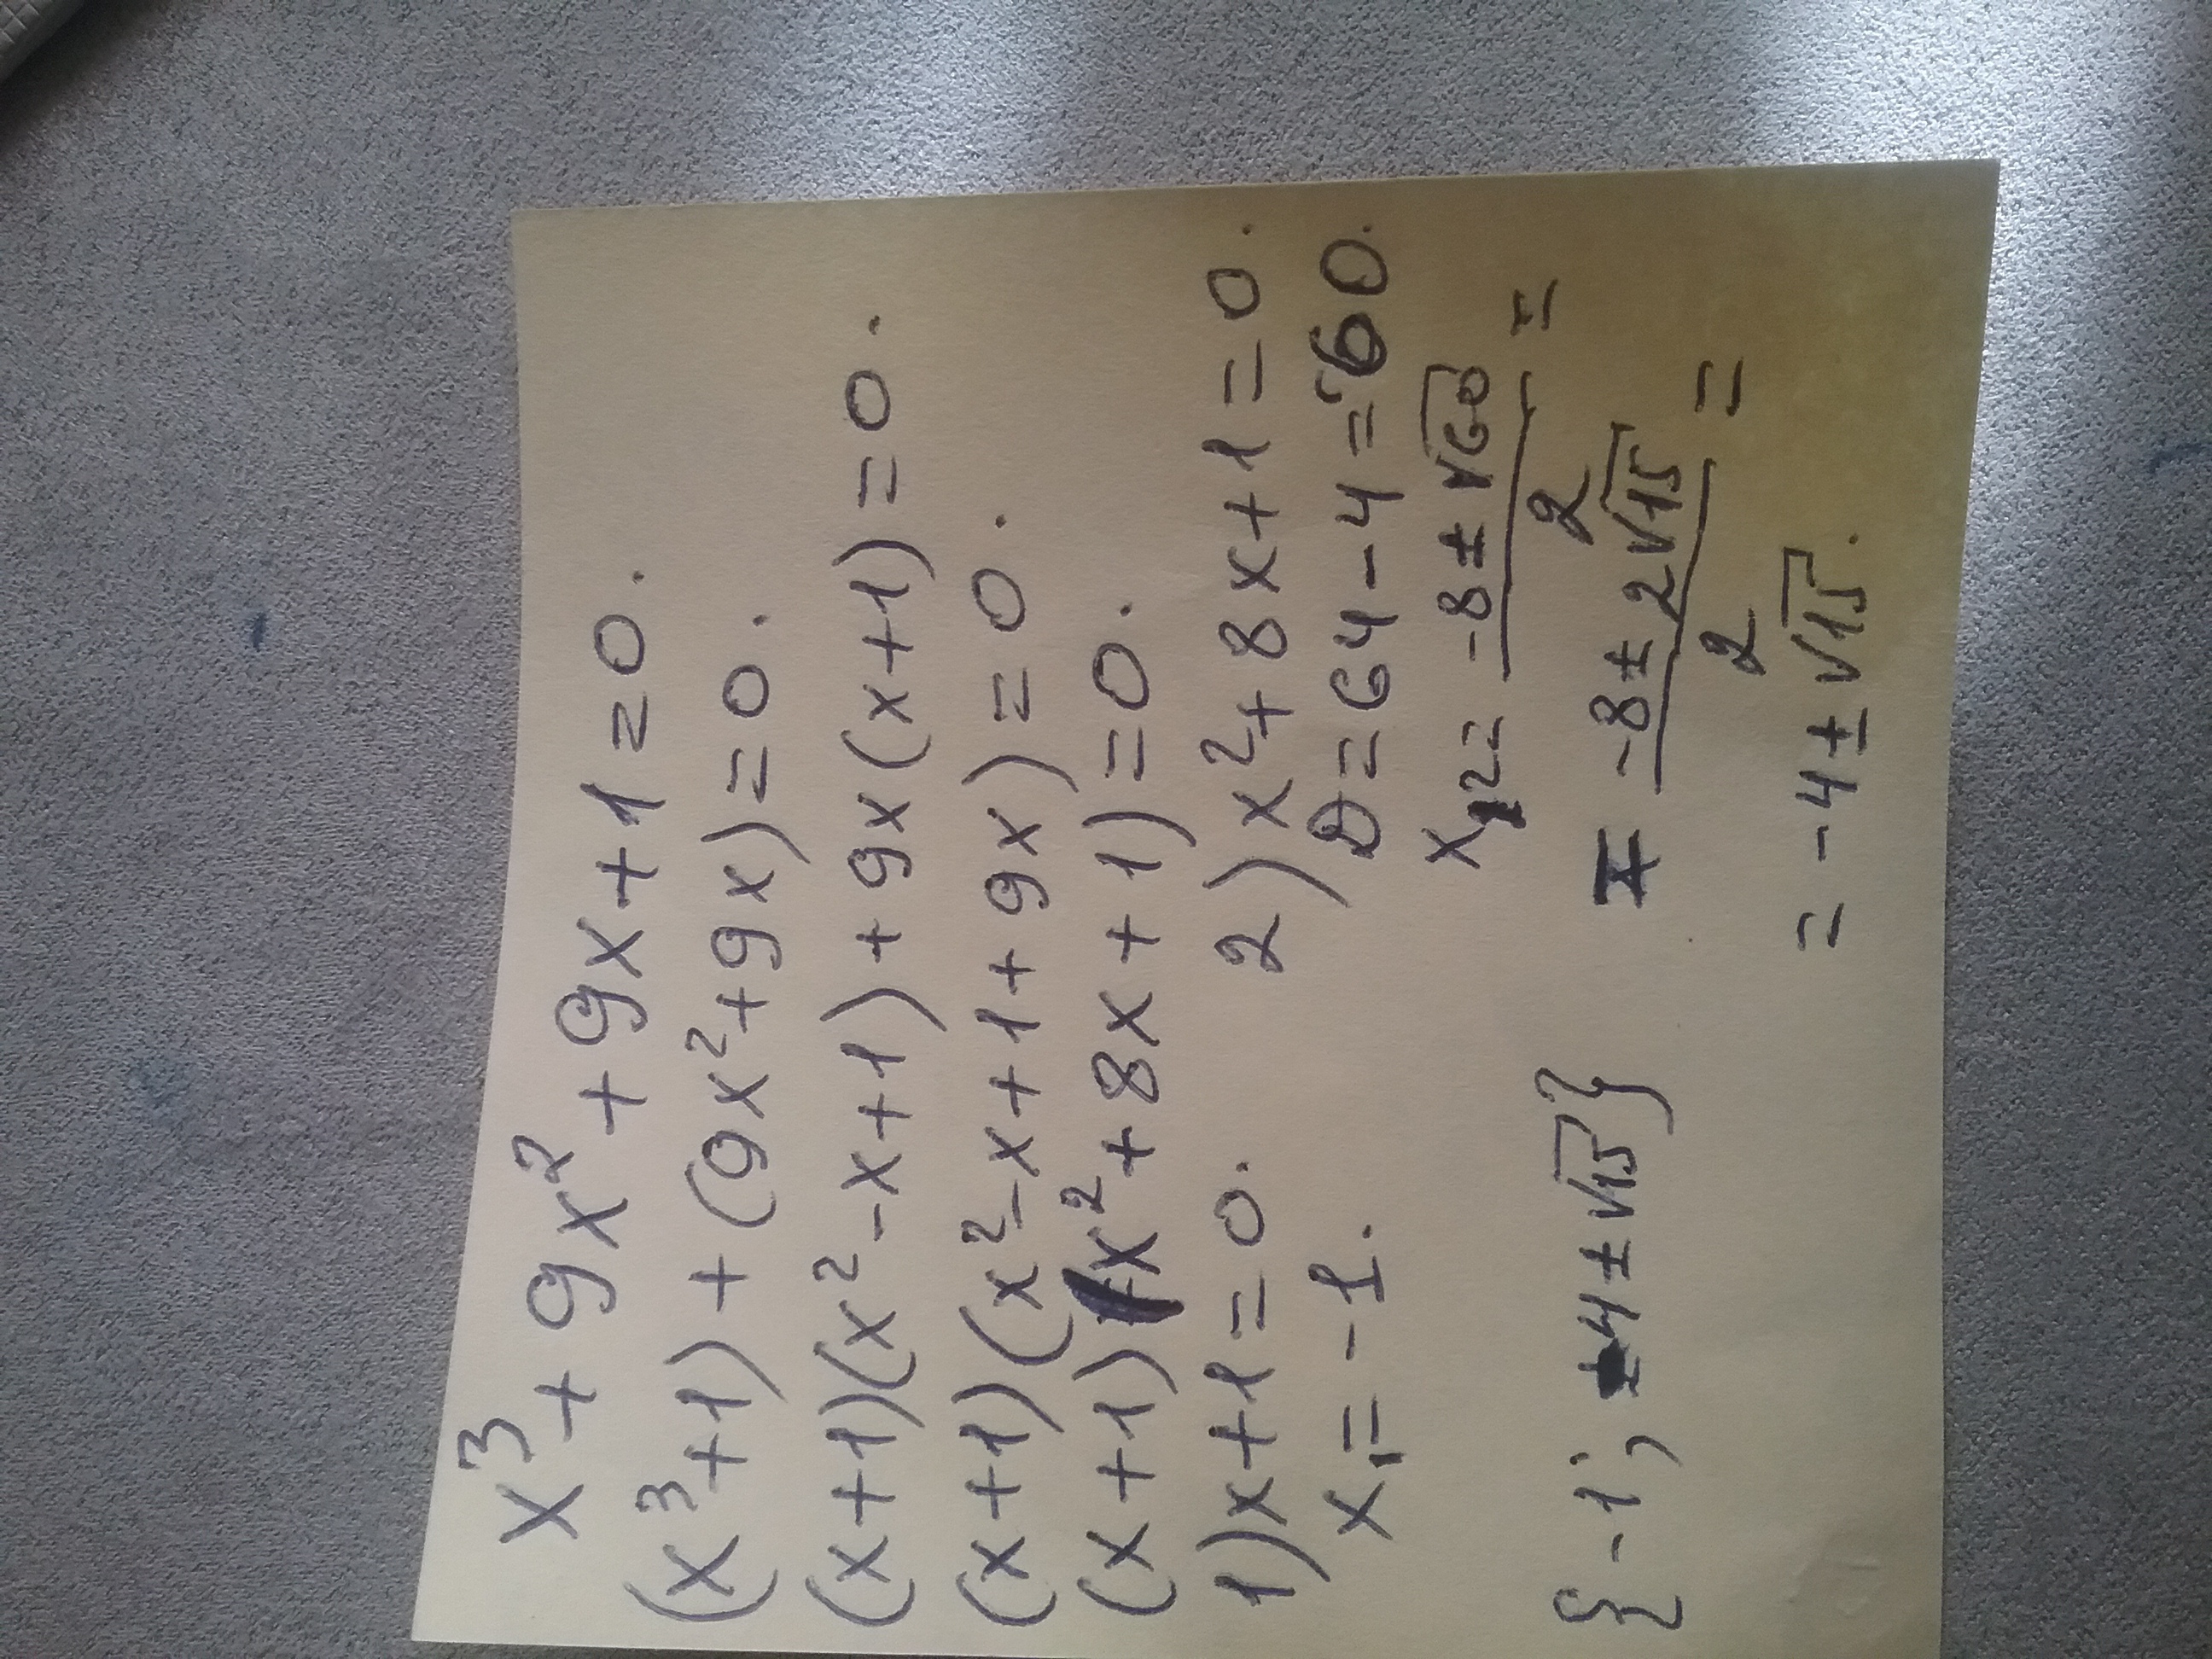 x³ + 9x² + 9x + 1 = 0.
(x³+1) + (9x²+9x) = 0.
(x+1)(x²-x+1) + 9x(x+1) = 0.
(x+1)(x²-x+1+9x) = 0.
(x+1)(x²+8x+1) = 0.
1) x+1=0.
x₁= -1.
2) x²+8x+1=0.
D=64-4=60.
x₁₂= (-8±√60)/2 =
= (-8±2√15)/2 =
= -4±√15.
{-1; -4±√15}